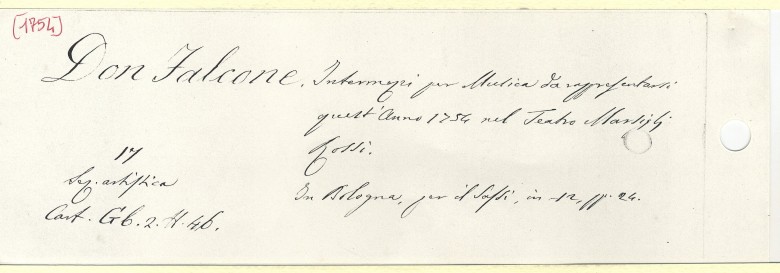 [1754]
Don Falcone. Intermezzi per Musica da rappresentarsi
quest'Anno 1754 nel Teatro Marsiglj
Rossi.
In Bologna, per il Sassi, in-12, pp. 24.
17
Sez. artistica
Cart. Gb. 2. H. 46.